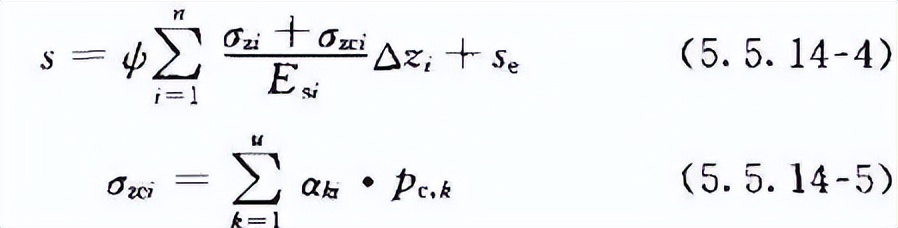 s = ψ∑_{i=1}^{n} \frac{σ_{zi} + σ_{zci}}{E_{si}} Δz_i + s_e (5.5.14-4)
σ_{zci} = ∑_{k=1}^{u} α_{ki} · p_{c,k} (5.5.14-5)